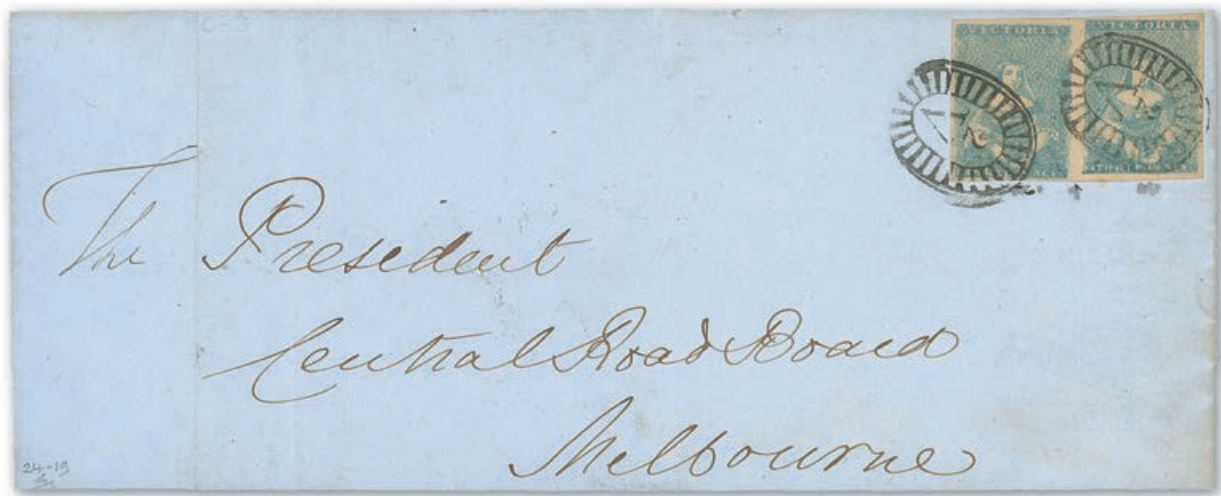 VICTORIA VICTORIA
The President
Central Road Board
Melbourne
24-19